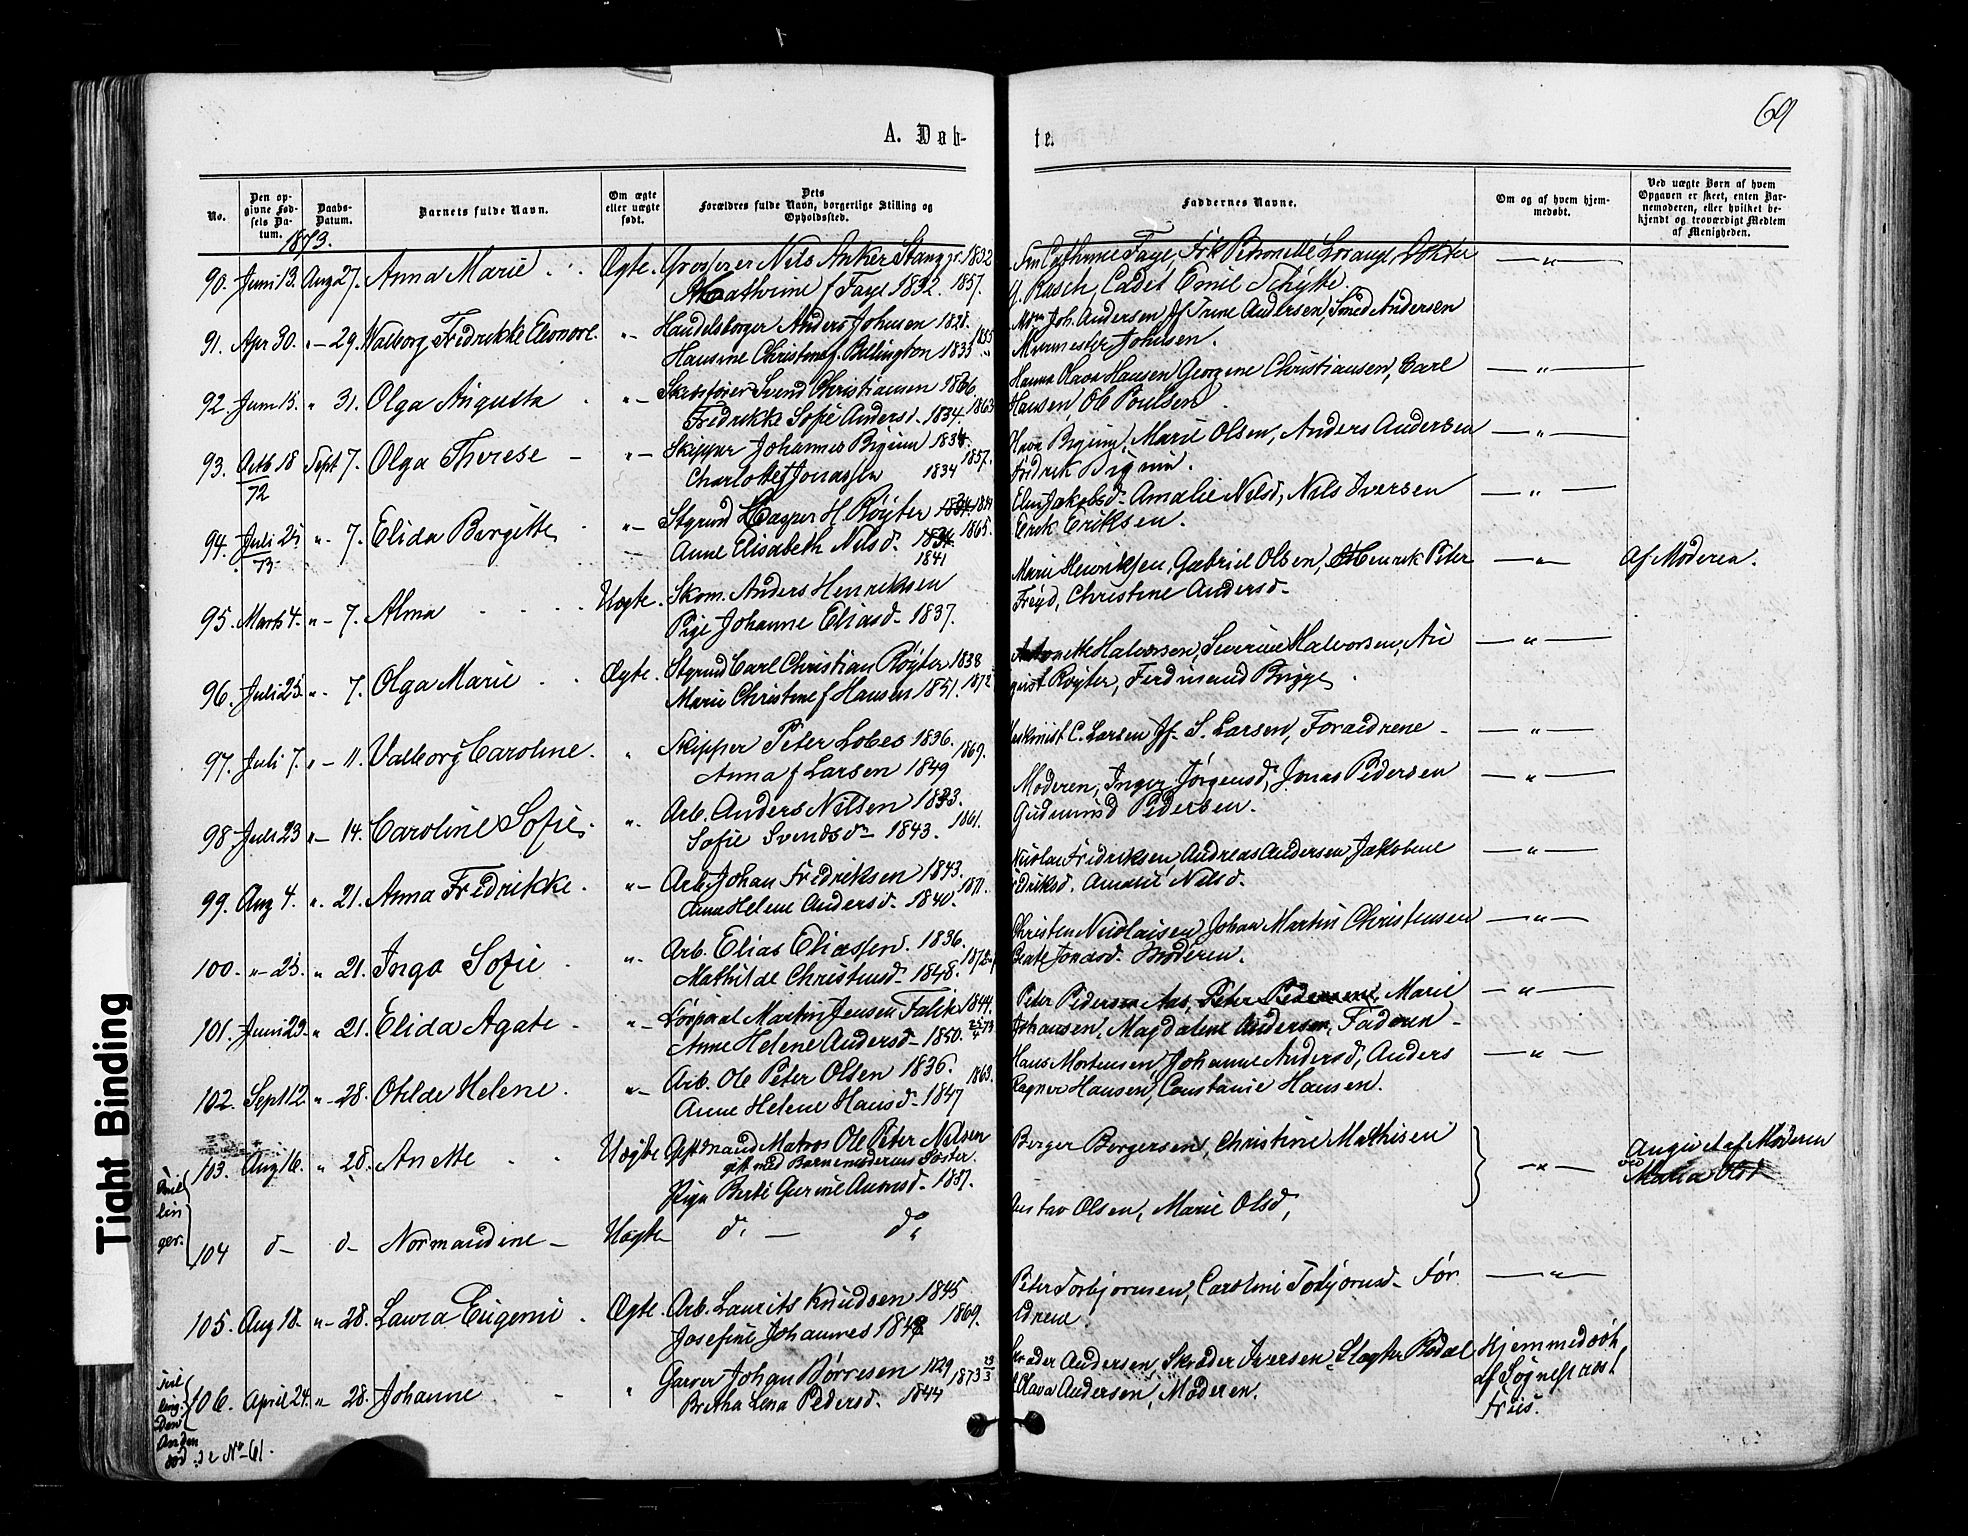 69
A. Døb-
te.
No.
Den op-
givne Fød-
sels Da-
tum.
Daabs-
Datum.
Barnets fulde Navn.
Om ægte
eller uægte
født.
Dets
Forældres fulde Navn, borgerlige Stilling og
Opholdssted.
Faddernes Navne.
Om og af hvem hjem-
medøbt.
Ved uægte Børn af hvem
Opgaven er skeet, enten Bar-
nemoderen, eller hvilket be-
kjendt og troværdigt Medlem
af Menigheden.
1873.
90. Juni 13. Aug 27. Anna Marie Ægte. Grosserer Nils Anker Stang jr. 1832
Cathrine f Faye 1832. 1857.
Cathrine Faye, Frk Petronelle
Rasch, Cadet Emil Schytte.
— " —
91. Apr 30. " — 29. Valborg Fredrikke Eleonore. " — Handelsborger Anders Johnsen 1828.
Hansine Christine f. Billington 1833 1855
Joh. Andersen, Jf Trine Andersen, Smed Andersen
Murmester Johnsen.
92. Juni 15. " 31. Olga Augusta " — Skibsfører Svend Christiansen 1836
Fredrikke Sofie Andersd. 1834. 1863
Hanna Olava Hansen, Georgine Christiansen, Carl
Hansen, Ole Poulsen
— " —
93. Octb 18 Sept 7. Olga Therese — " — Skipper Johannes Bigum 1834.
72
Charlotte f Jonassen 1834 1857.
Bigum, Marie Olsen, Anders Andersen
Fredrik Bigum.
— " —
94. Juli 25 " 7. Elida Birgitte " — Styrmd Casper H. Røyter
73.
Anne Elisabeth Nilsd. 1865.
1841
Jakobsd. Amalie Nilsd, Nils Iversen
Erik Eriksen.
— " —
95. Marts 4. " — 7. Alma Uægte. Skom. Anders Henriksen
Pige Johanne Eliasd. 1837.
Marie Henriksen, Gabriel Olsen, Henrik Peter
Christine Andersd.
— " —
Af Moderen.
96. Juli 25. " 7. Olga Marie Ægte. Styrmd Carl Christian Røyter 1838
Marie Christine f Hansen 1851. 1872
Halvorsen, Severine Halvorsen, Au
gust Røyter, Ferdinand Brigge
— " —
97. Juli 7. " — 11. Valborg Caroline. " Skipper Peter Lobes 1836.
Anna f Larsen 1849 1869.
C. Larsen Jf. S. Larsen, Forældrene —
— " —
98. Juli 23 " — 14. Caroline Sofie. " Arb. Anders Nilsen 1833.
Sofie Svendsd — 1843. 1861.
Moderen, Inger Jørgensd, Jonas Pedersen
Gudmund Pedersen.
— " —
99. Aug 4. " 21. Anna Fredrikke. " — Arb. Johan Fredriksen 1843.
Anne Helene Andersd. 1840. 1871.
Fredriksen, Andreas Andersen, Jakobine
Amalie Nilsd.
— " —
100. " — 25. " 21. Inga Sofie " Arb. Elias Eliassen. 1836.
Mathilde Christensd — 1848. 1872
Christen Nicolaisen, Johan Martin Christensen
Beate Jonasd. Moderen.
— " —
101. Juni 29. " 21. Elida Agate. " — Martin Jensen Falik 1844.
Anne Helene Andersd — 1850. 73
Peter Pedersen Aas, Marie
Johansen, Magdalene Andersen, Faderen —
— " —
102. Sept 12. " — 28. Otilde Helene. " — Arb. Ole Peter Olsen 1836. 1863.
Anne Helene Hansd — 1847
Hans Mortensen, Johanne Andersd, Anders
Ragner Hansen, Constanse Hansen.
— " —
103. Aug 16. " 28. Anette Uægte Gift mand Matros Ole Peter Nilsen
gift med Barnemoderens Søster.
Pige Berte Gurine Amonsd — 1837.
Berger Bergersen, Christine Mathisen
— " —
Angivet af Moderen
ved
Maria Olsd
104 d — d — Normandine — Uægte d. — do
Gustav Olsen, Marie Olsd,
105. Aug 18. " — 28. Laura Eugenie. Ægte. Arb. Laurits Knudsen 1845
Josefine Johannes 184 1869.
Peter Torbjørnsen, Caroline Torbjørnsd — For
ældrene.
— " —
106. April 24. " 28. Johanne — " Garver Johan Børresen 1829
Bretha Lena Pedersd. 1844 1873
Andersen, Skræder Iversen, Slagter
Olava Andersen, Moderen.
Hjemmedøbt
af Sognepræst
Friis.
Tvil
lin
ger.
Tvil
ling.
Den
Anden
død se No 61.
Tight Binding